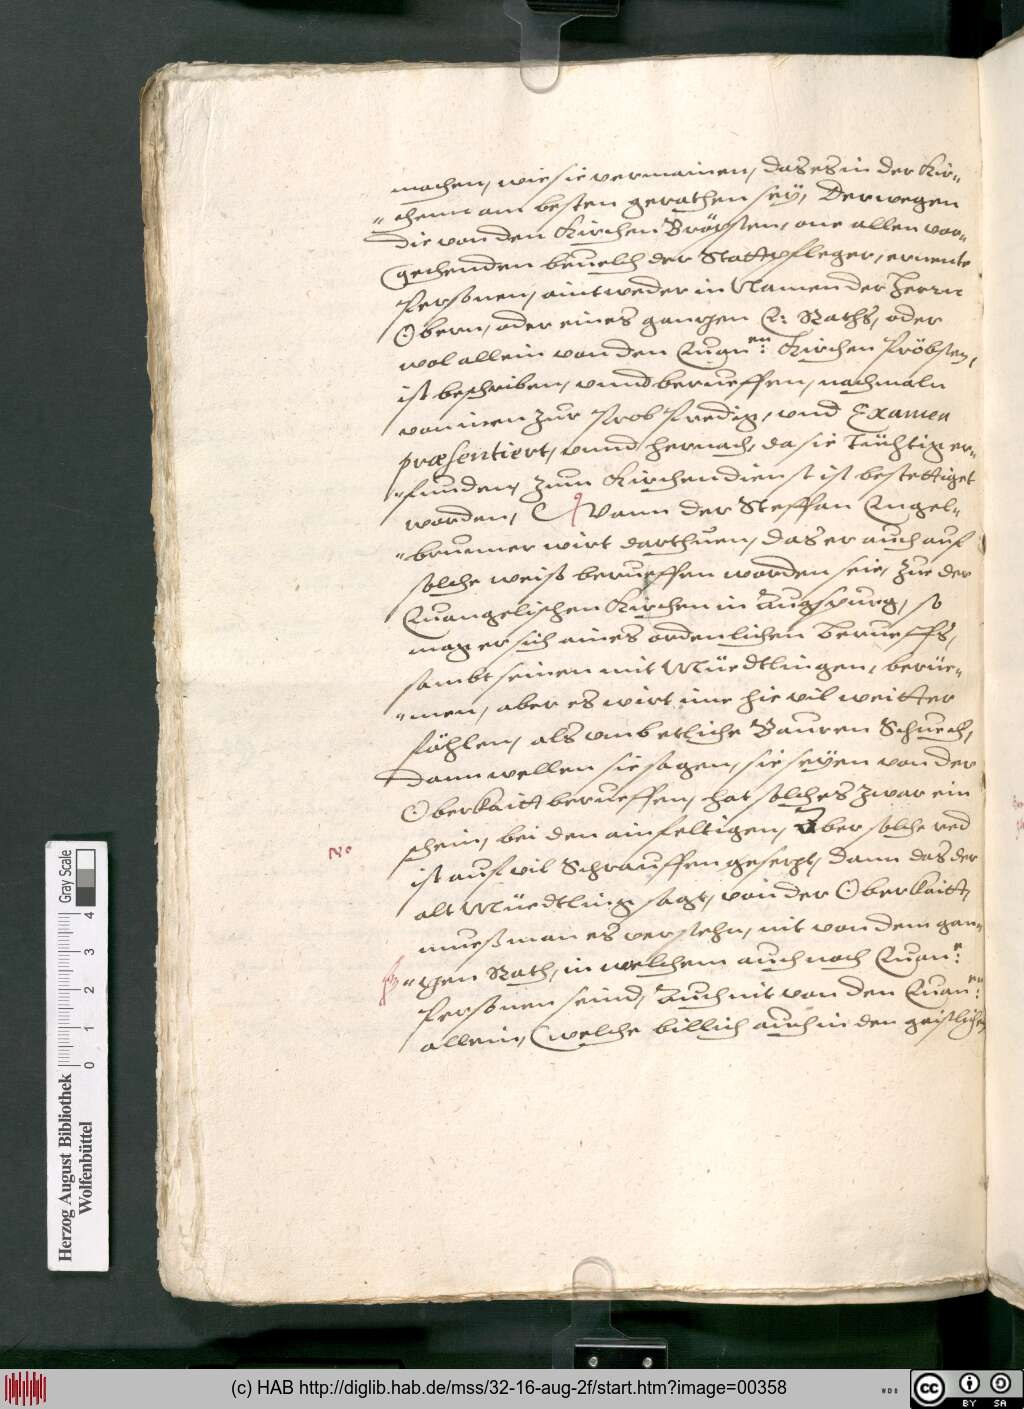 machen, wie sie vermainen, das es in der Kir¬
¬chenn am besten gerathen seÿ, Derwegen
die von den Kirchen Bröpsten, one allen vor¬
gechenden beuelch der Stattpfleger, ernente
Personen, aintweder in Namen der Herrn
Obern, oder eines gantzen E: Raths, oder
wol allein von den Euan:en Kirchen Pröbsten,
ist beschriben, vnnd berueffen, nachmaln
von inen zur Prob Predig, vnd Examen
præsentiert, vnnd hernach, da sie tüchtig er¬
¬funden, zum Kirchendienst ist bestettiget
worden, Wann der Steffan Engel¬
¬brunner wirt darthuen, das er auch auf
solche weiß berueffen worden seie, zue der
Euangelischen Kirchen in Augspurg, so
mag er sich aines ordenlichen berueffs,
sambt seinen mit Müedtlingen, berüe¬
¬men, aber es wirt ime hie vil weitter
föhlen, als vmb etliche Bauren Schuech,
Dann wellen sie sagen, sie seÿen von der
Oberkaitt berueffen, hat solches zwar ein
schein, bei den ainfeltigen, Aber solche red
ist auf vil Schrauffen gesetzt, Dann das der
alt Müedtling sagt, von der Oberkaitt,
mueß man es verstehn, nit von dem gan¬
¬tzen Rath, in welchem auch noch Euan:e
Personen seind, Auch nit von den Euan:en
allein, (welche billich auch in den geistlichen
No
Herzog August Bibliothek
Wolfenbüttel
Gray Scale
0 1 2 3 4
(c) HAB http://diglib.hab.de/mss/32-16-aug-2f/start.htm?image=00358
WDB
cc BY SA